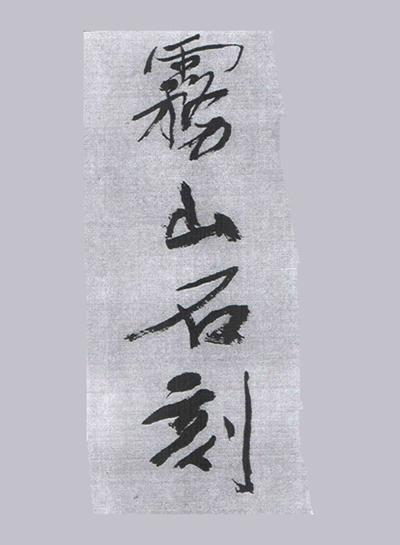 霧山石刻